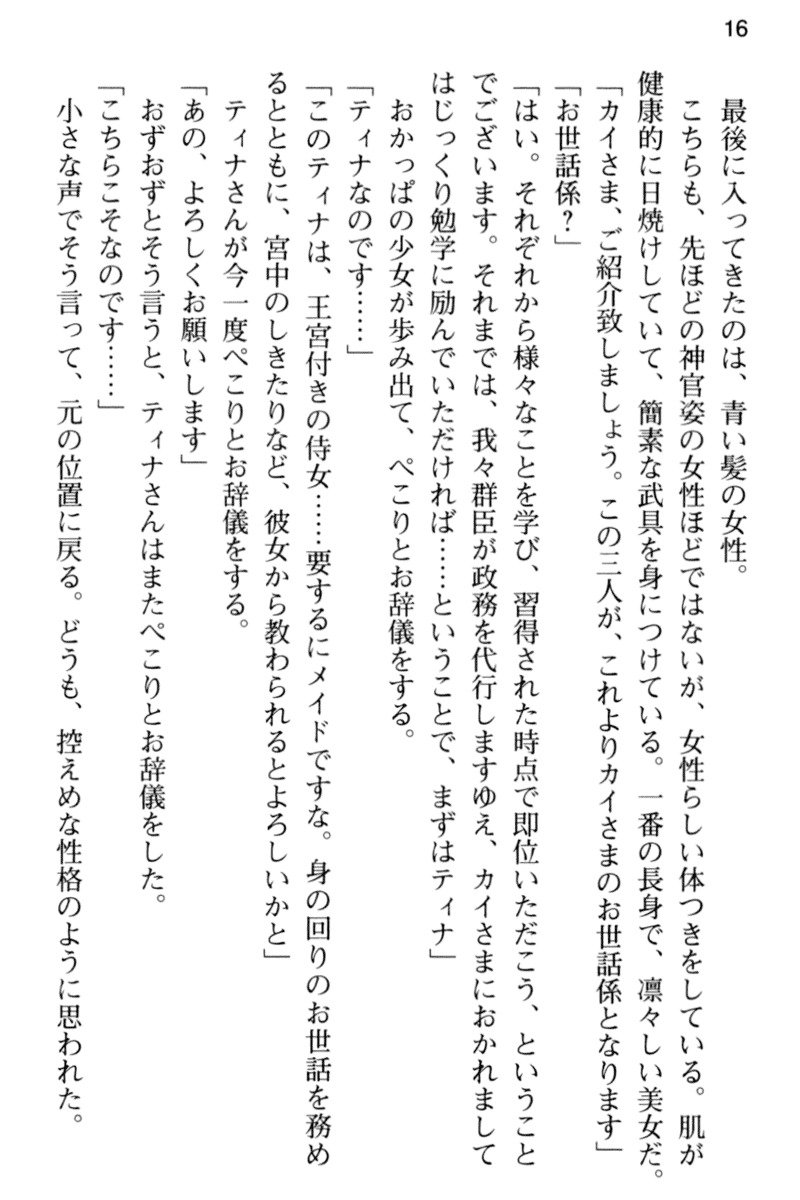 16
最後に入ってきたのは、青い髪の女性。
こちらも、先ほどの神官姿の女性ほどではないが、女性らしい体つきをしている。肌が
健康的に日焼けしていて、簡素な武具を身につけている。一番の長身で、凛々しい美女だ。
「カイさま、ご紹介致しましょう。この三人が、これよりカイさまのお世話係となります」
「お世話係？」
「はい。それぞれから様々なことを学び、習得された時点で即位いただこう、ということ
でございます。それまでは、我々群臣が政務を代行しますゆえ、カイさまにおかれまして
はじっくり勉学に励んでいただければ……ということで、まずはティナ」
おかっぱの少女が歩み出て、ぺこりとお辞儀をする。
「ティナなのです……」
「このティナは、王宮付きの侍女……要するにメイドですな。身の回りのお世話を務め
るとともに、宮中のしきたりなど、彼女から教わられるとよろしいかと」
ティナさんが今一度ぺこりとお辞儀をする。
「あの、よろしくお願いします」
おずおずとそう言うと、ティナさんはまたぺこりとお辞儀をした。
「こちらこそなのです……」
小さな声でそう言って、元の位置に戻る。どうも、控えめな性格のように思われた。